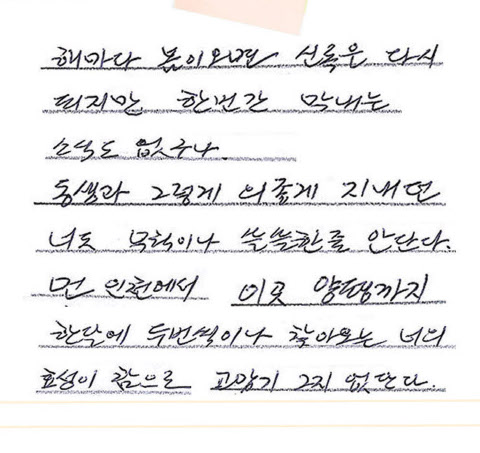 해마다 봄이오면 신록은 다시
되지만 한번간 막내는
소식도 없구나.
동생과 그렇게 의좋게 지내던
너도 무척이나 쓸쓸한줄 안단다.
먼 인천에서 이곳 양평까지
한달에 두번씩이나 찾아오는 너의
효성이 참으로 고맙기 그지 없단다.